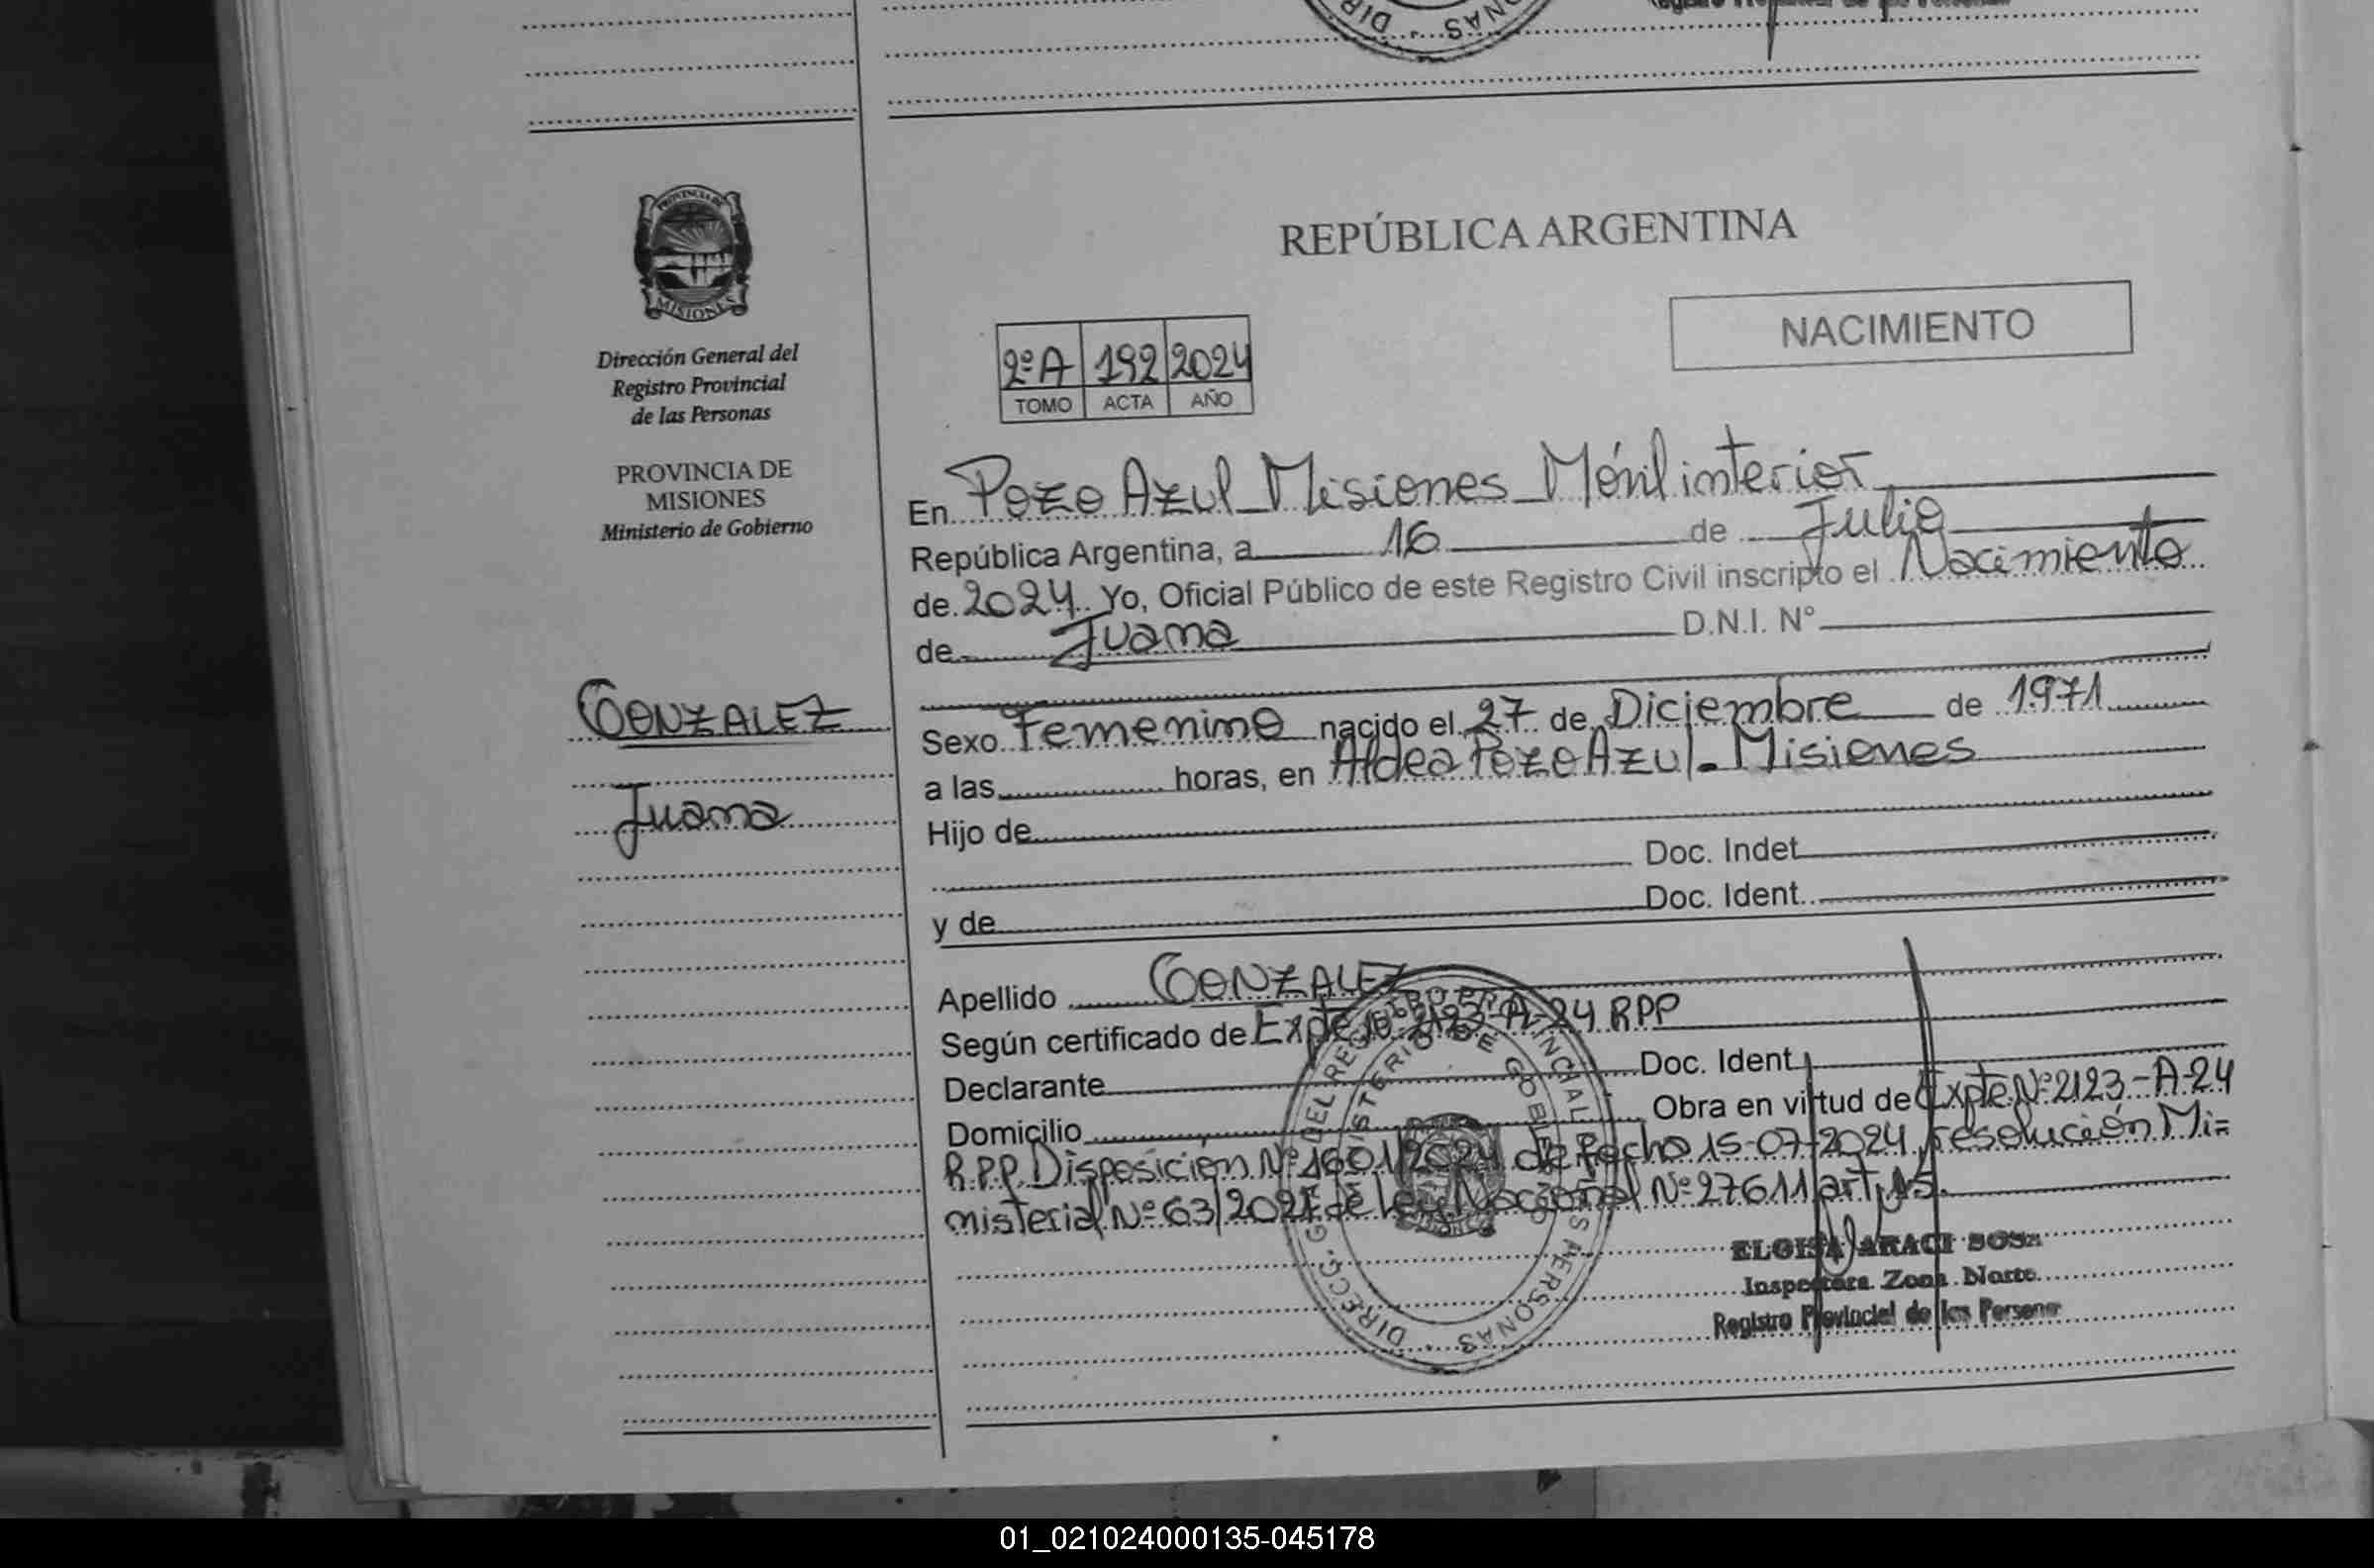 DIR
NAS
PROVINCIA DE
MISIONES
Dirección General del
Registro Provincial
de las Personas
PROVINCIA DE
MISIONES
Ministerio de Gobierno
GONZALEZ
Juana
REPÚBLICA ARGENTINA
NACIMIENTO
2ºA 192 2024
TOMO ACTA AÑO
En Pozo Azul_Misiones_Móvil interior
República Argentina, a 16 de Julio
de 2024 Yo, Oficial Público de este Registro Civil inscripto el Nacimiento
de Juana D.N.I. N°
Sexo Femenino nacido el 27 de Diciembre de 1971
a las horas, en Aldea Pozo Azul - Misiones
Hijo de
Doc. Indet
y de Doc. Ident.
Apellido GONZALEZ
Según certificado de Expte Nº 2123-A-24 RPP
Declarante Doc. Ident
Domicilio Obra en virtud de Expte Nº 2123-A-24
R.P.P. Disposición Nº 1601/2024 de fecha 15-07-2024, resolución Mi=
misterial Nº 63/2021 de Ley Nacional Nº 27611 art. 15.
DIRECC. GRAL. DEL REGISTRO PROVINCIAL DE LAS PERSONAS
MINISTERIO DE GOBIERNO
ELOISA ARACI SOSA
Inspectora Zona Norte
Registro Provincial de las Personas
01_021024000135-045178